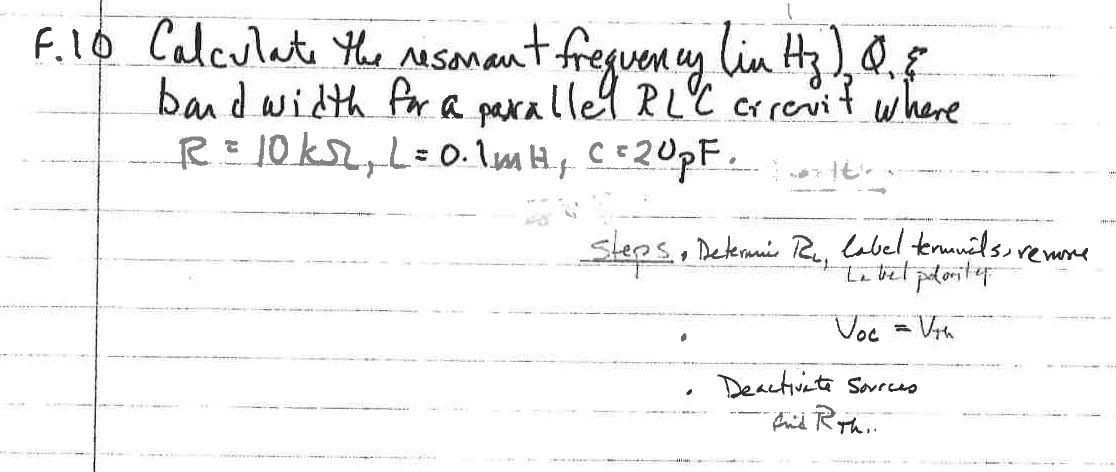 F.10 Calculate the resonant frequency (in Hz), Q, &
bandwidth for a parallel RLC circuit where
R = 10 kΩ, L = 0.1 mH, C = 20 pF.
Steps • Determine RL, label terminals, remove
Label polarity
• Voc = VTh
• Deactivate sources
find RTh..